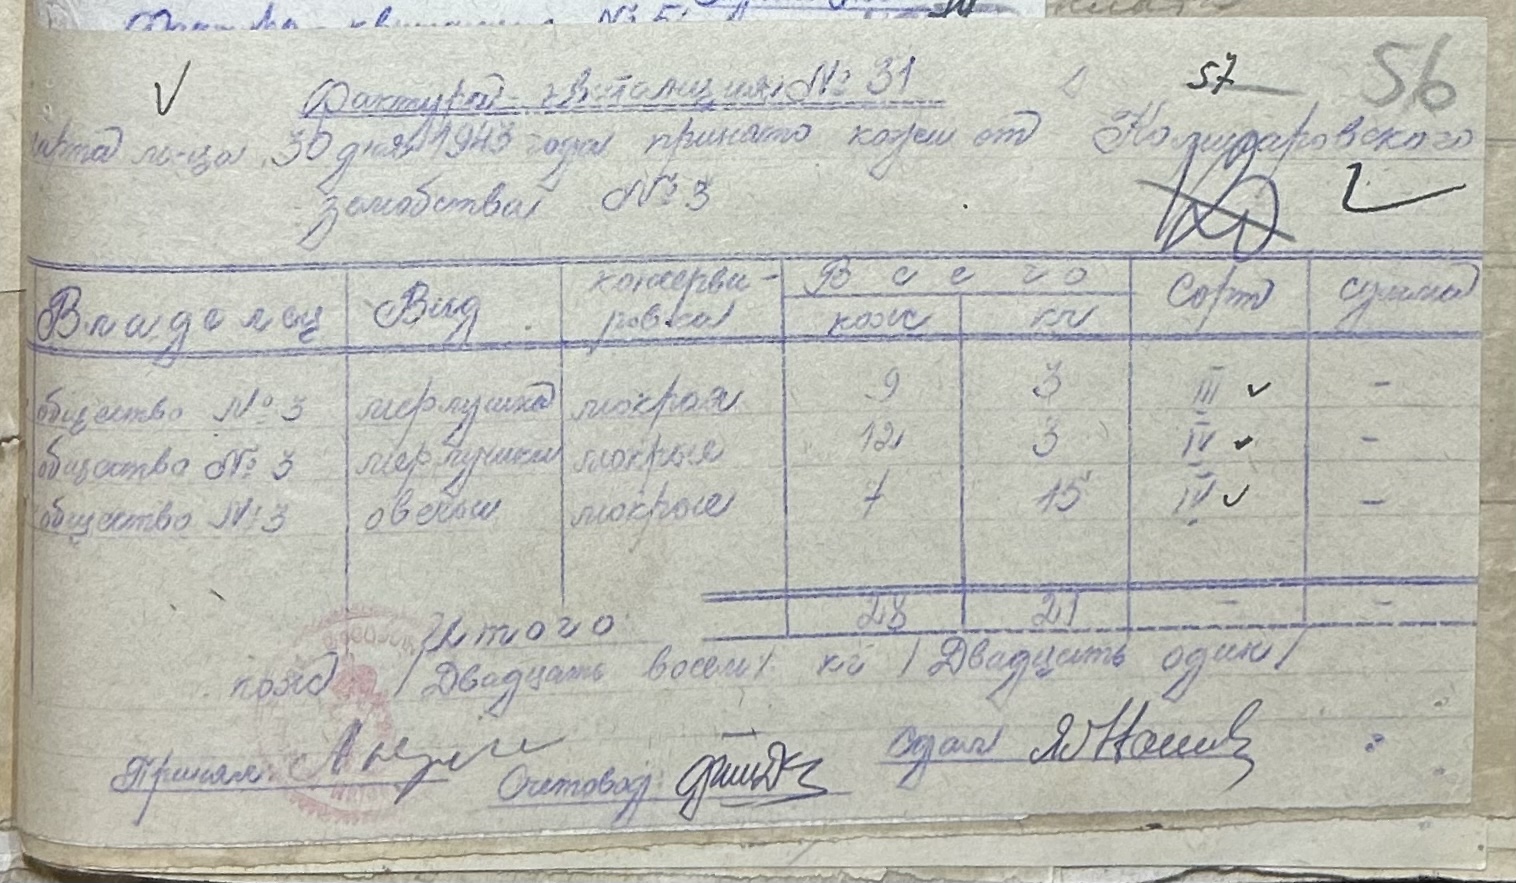 57 56
Фактура-квитанция № 31
марта м-ца 30 дня 1943 года принято кожи от
№ 3
Владелец Вид консерви- Всего Сорт сумма
ровка кож кг
общество № 3 мерлушка мокрая 9 3 III -
общество № 3 мерлушки мокрые 12 3 IV -
общество № 3 овечьи мокрые 7 15 IV -
Итого 28 21 - -
кож /Двадцать восемь/ кг /Двадцать один/
Принял Счетовод Сдал